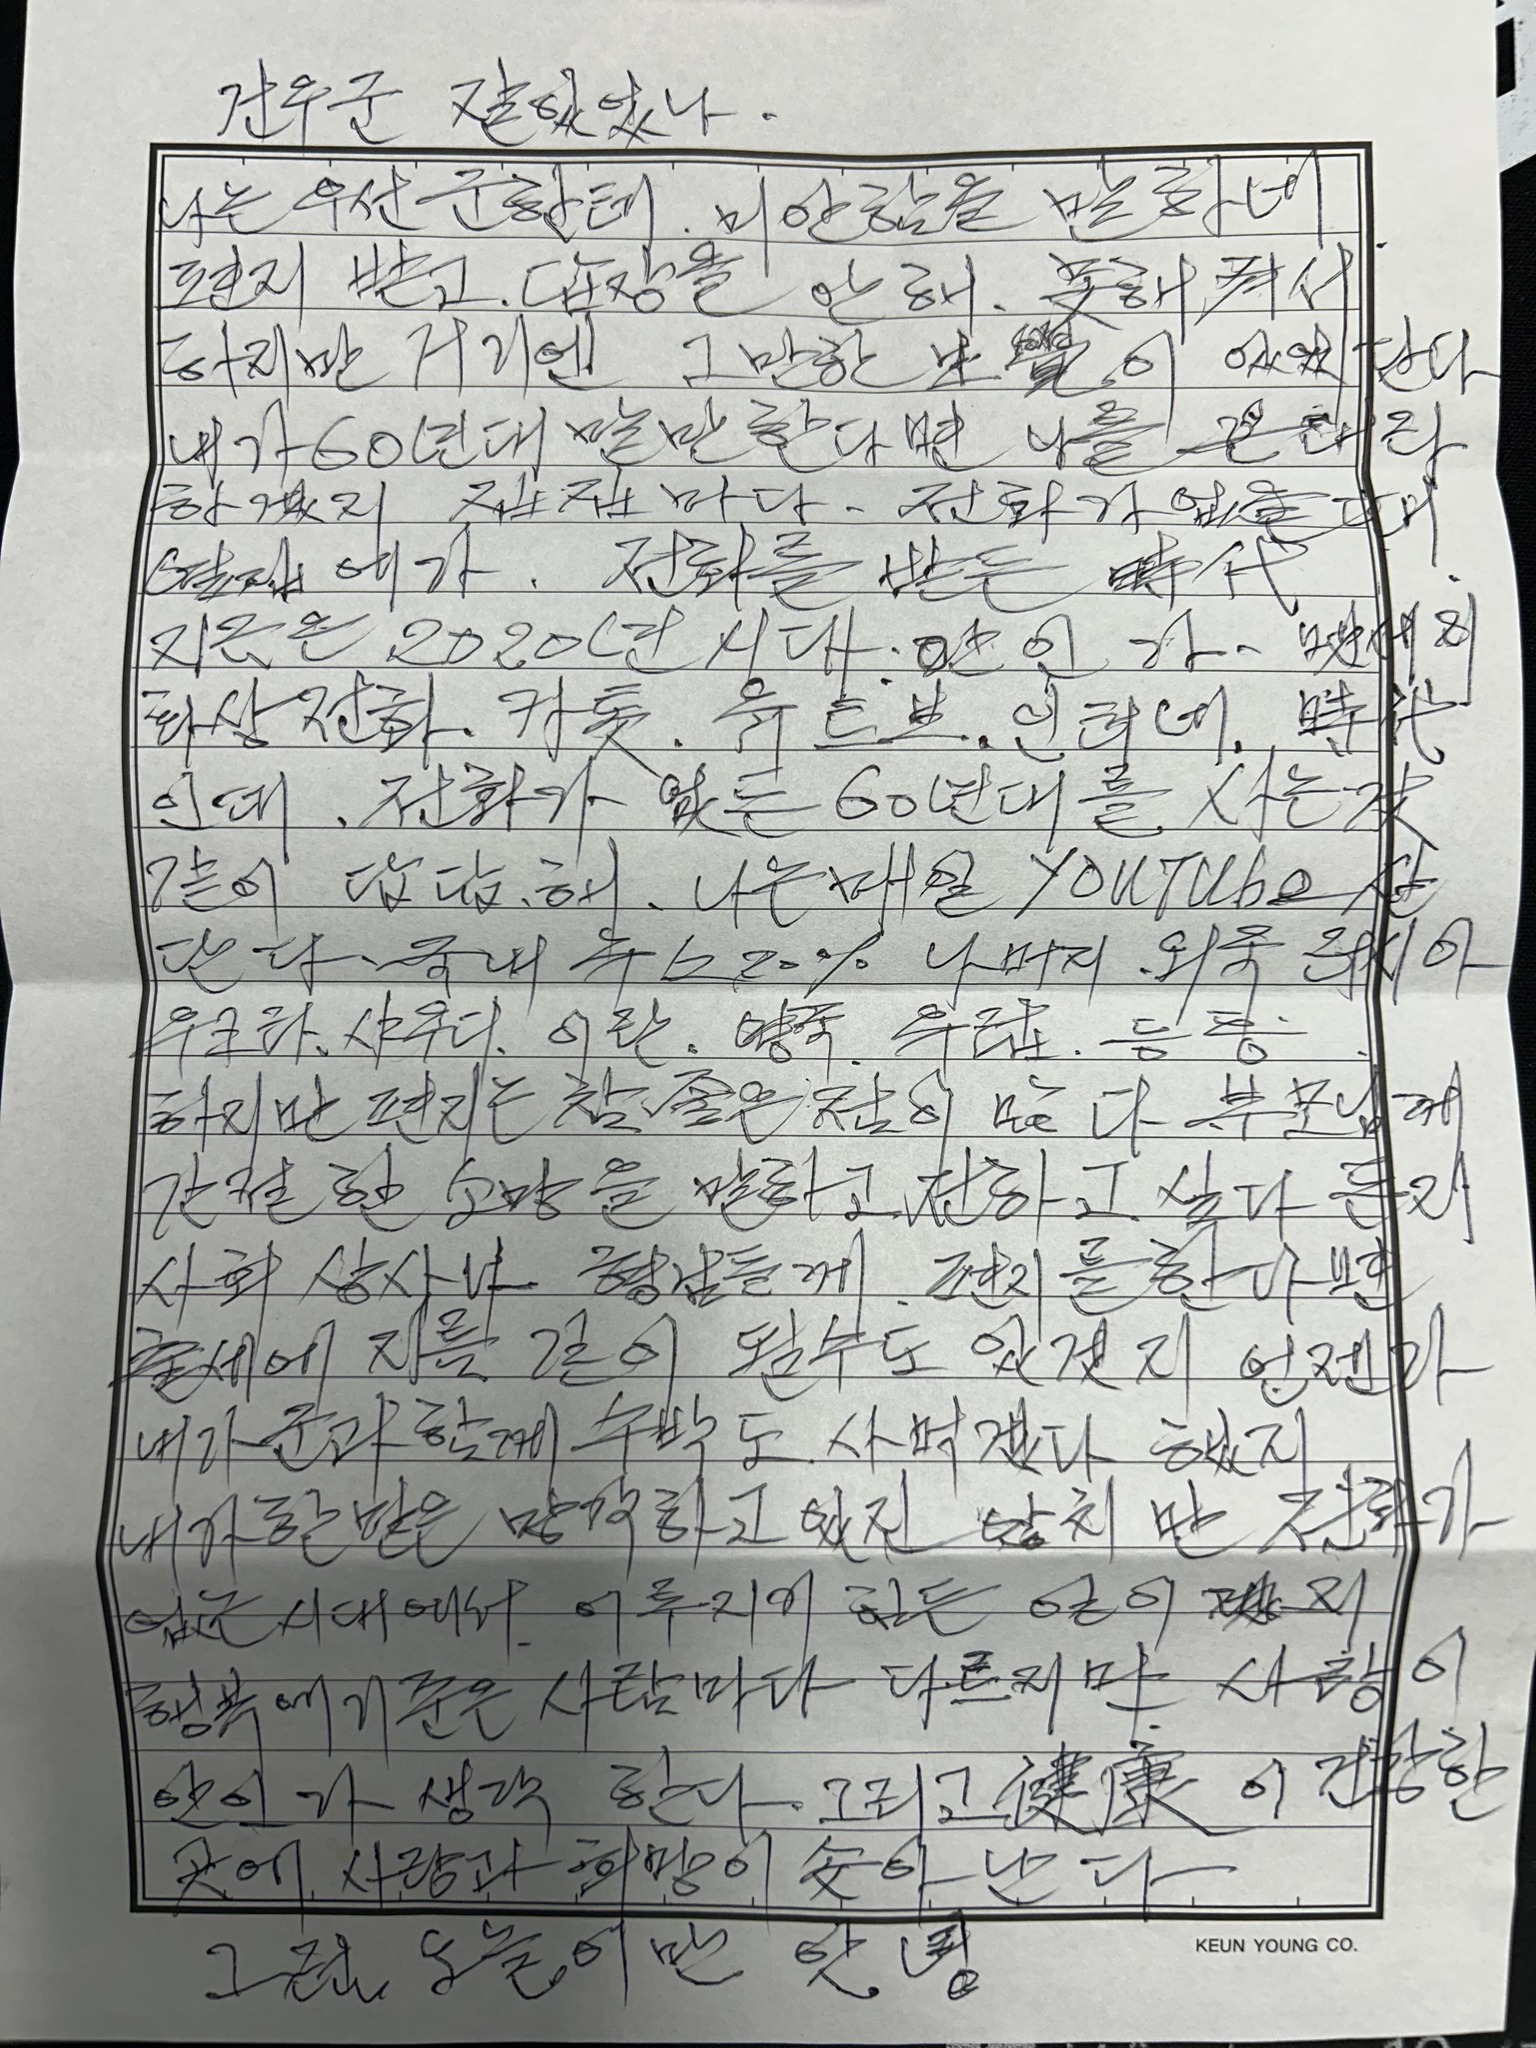 건우군 잘있었나.
나는 우산군한테. 미안함을 말하네.
편지 받고. 답장을 안해. 못해줘서
하지만 거기엔 그만한 이 있었단다
내가 60년대 말만한다면 나를 꼰대라
하겠지 집집마다. 전화가 없을때
에가. 전화를 받는 時代.
지금은 2020년 시대. 만인가.
화상전화. 카톡. 유트브. 인터넷. 時代
인데. 전화가 없는 60년대를 사는것
같이 답답.해. 나는 매일 YOUTUbe
단다. 국내 뉴스 20% 나머지. 외국 러시아
우크라. 사우디. 이란. 영국. 유럽. 등등.
하지만 편지는 참 좋은점이 많다 부모님께
간절한 소망을 말하고. 전하고. 싶다든지
사회 상사나 형님들께. 편지를 한다면
출세에 지름길이 될수도 있겠지 언젠가
내가 군과 함께 수박도. 사먹겠다 했지
내가 한말은 망각하고 있진 않치만 전화가
없는 시대에서. 이루지기 힘든 일이 지
행복에 기준은 사람마다 다르지만. 사랑이
안인가 생각 한다. 그리고 健康이 건강한
곳에 사랑과 희망이 솟아 난다
그럼 오늘 이만 안녕
KEUN YOUNG CO.